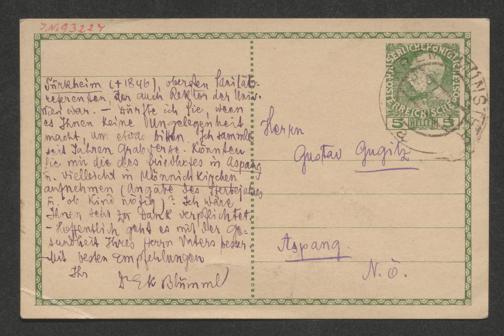 J.N. 93227
Türkheim († 1846), obersten Sanitäts-
referenten, der auch Rektor der Univ.
war. – Dürfte ich Sie, wenn
es Ihnen keine Ungelegenheit
macht, um etwas bitten. Ich sammle
seit Jahren Grabverse. Könnten
Sie mir die des Friedhofes in Aspang
u. vielleicht in Mönnichkirchen
aufnehmen (Angabe des Sterbejahres
u. ob Kind nötig)? Ich wäre
Ihnen sehr zu Dank verpflichtet.
– Hoffentlich geht es mit der Ge-
sundheit Ihres Herrn Vaters besser.
Mit besten Empfehlungen
Ihr
Dr EK Blümml
Herrn
Gustav Gugitz
Aspang
N. Ö.
5 HELLER 5